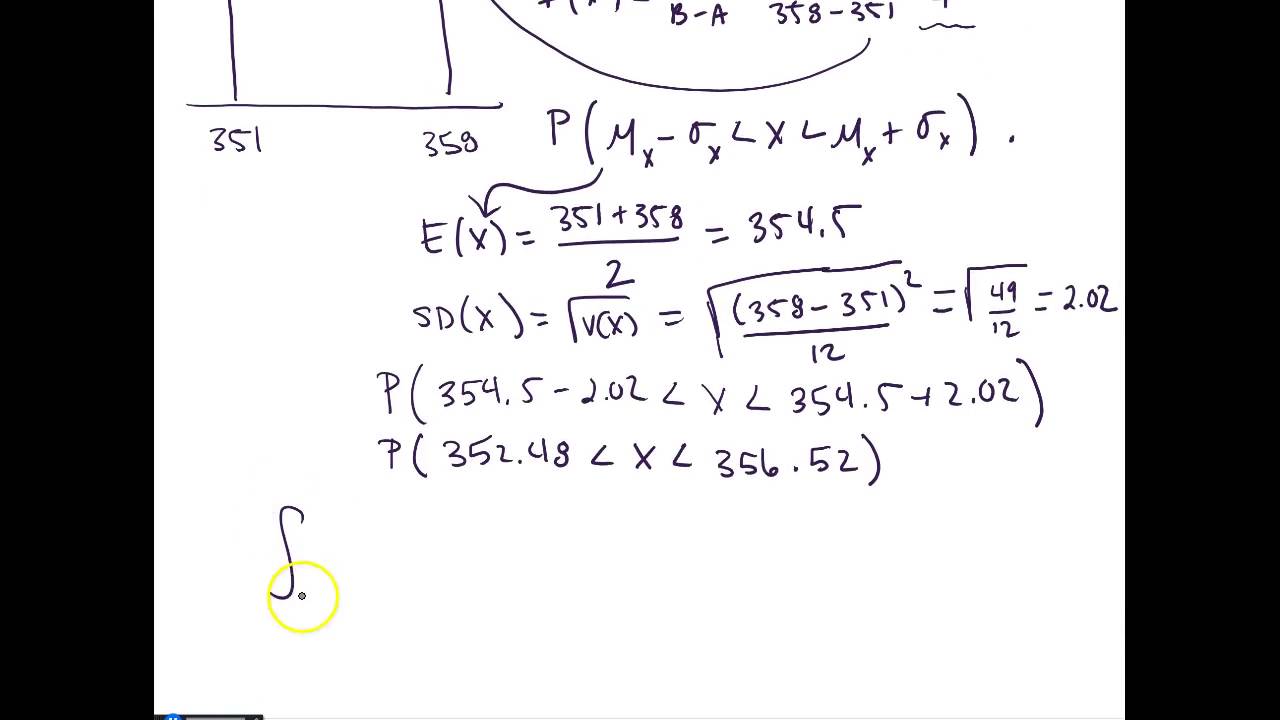 B-A 358-351
351 358
P(μₓ - σₓ < X < μₓ + σₓ).
E(X) = (351+358)/2 = 354.5
SD(X) = √V(X) = √((358-351)²/12) = √(49/12) = 2.02
P(354.5 - 2.02 < X < 354.5 + 2.02)
P(352.48 < X < 356.52)
∫